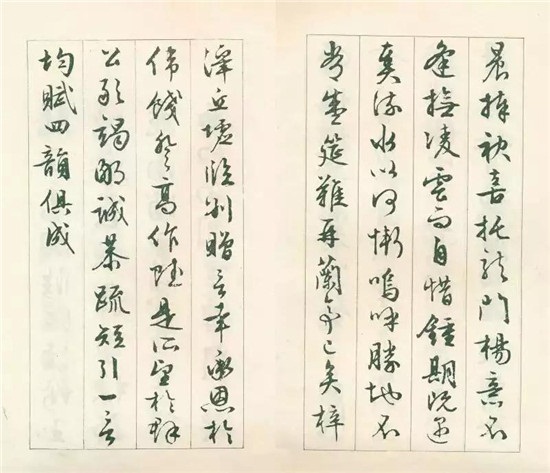 晨捧袂喜托龍門楊意不
逢撫凌雲而自惜鍾期既遇
奏流水以何慚嗚呼勝地不
常盛筵難再蘭亭已矣梓
澤丘墟臨別贈言幸承恩於
偉餞登高作賦是所望於群
公敢竭鄙誠恭疏短引一言
均賦四韻俱成